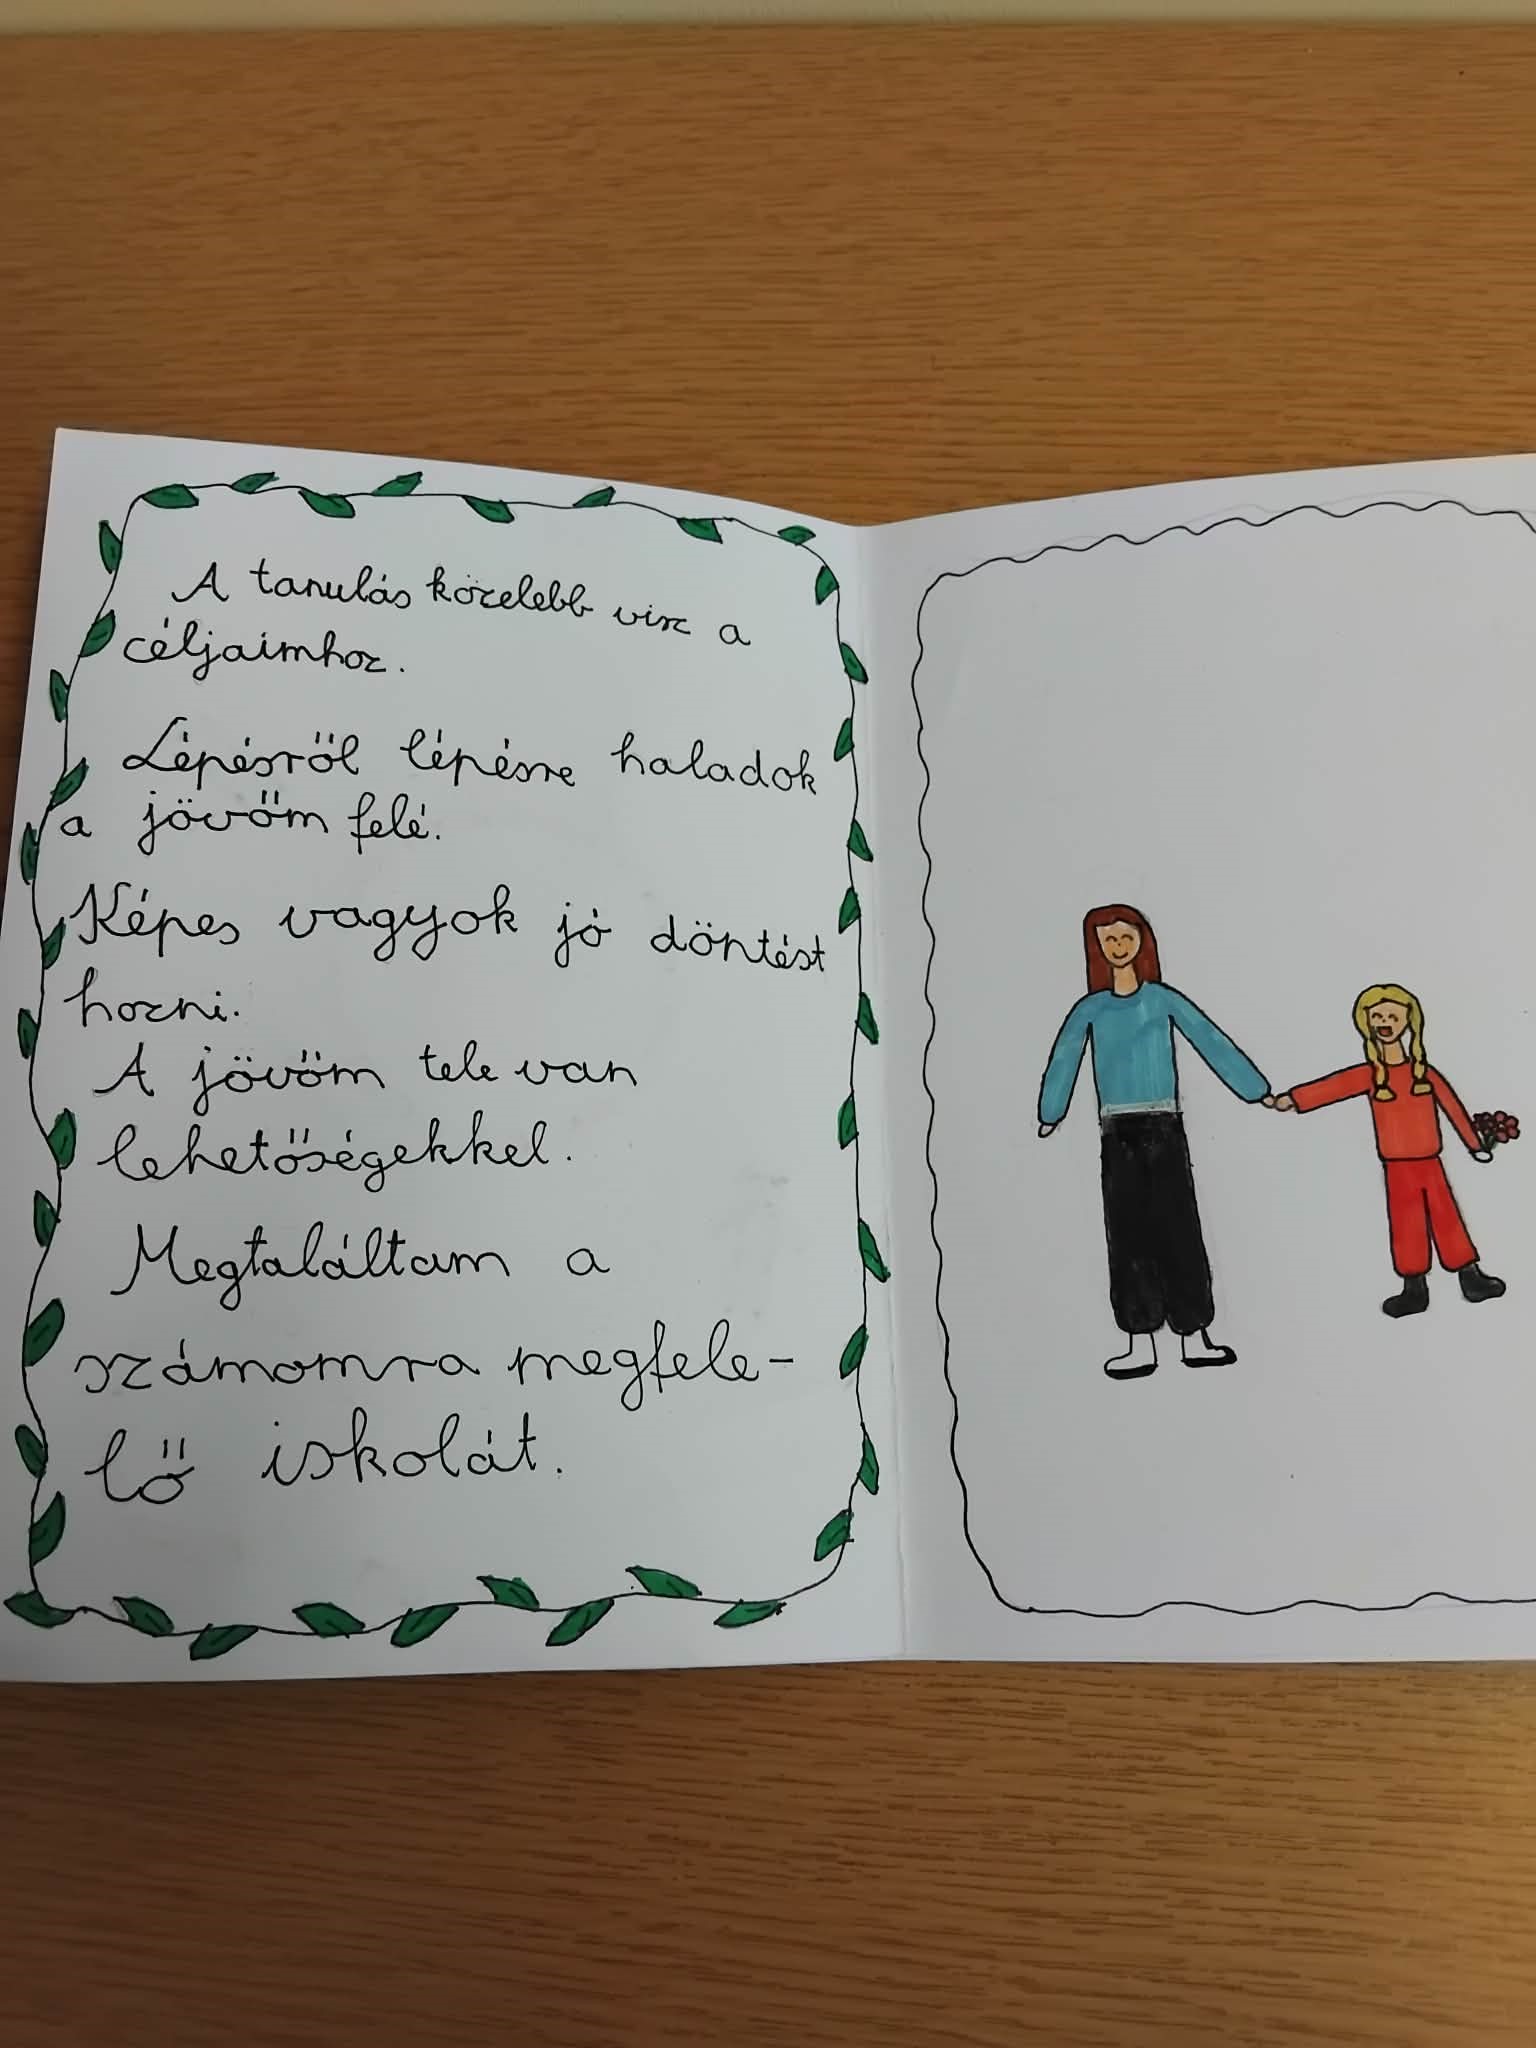 A tanulás közelebb visz a
céljaimhoz.
Lépésről lépésre haladok
a jövőm felé.
Képes vagyok jó döntést
hozni.
A jövőm tele van
lehetőségekkel.
Megtaláltam a
számomra megfele-
lő iskolát.